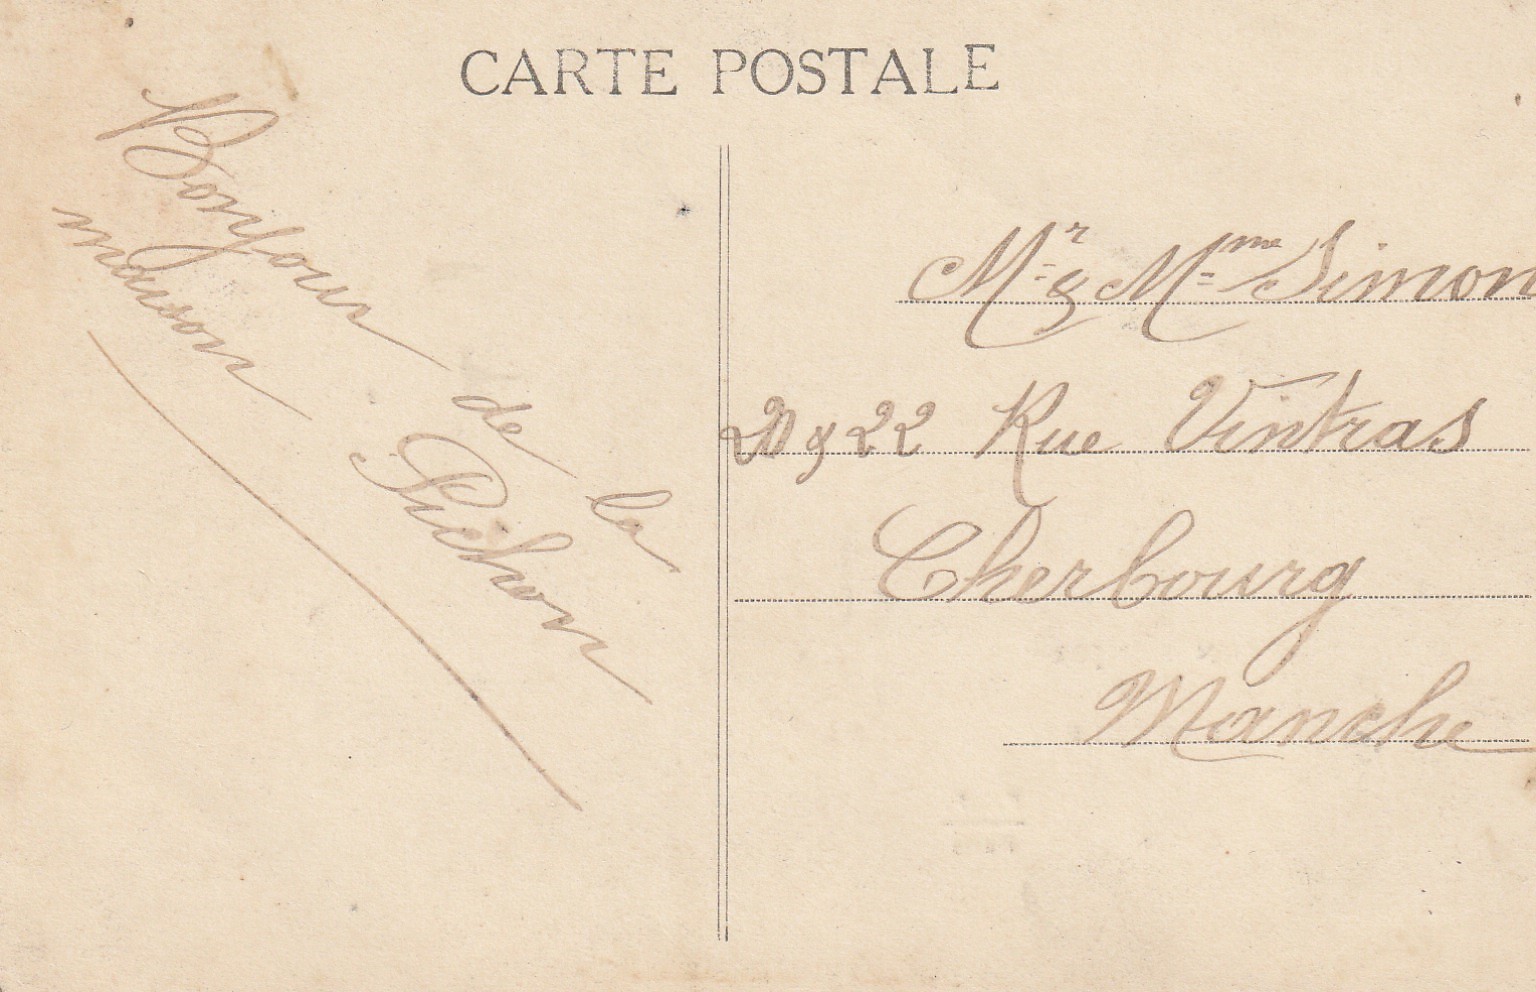 CARTE POSTALE
Bonjour de la
maison Pichon
Mr & Mme Simon
20 & 22 Rue Vintras
Cherbourg
Manche